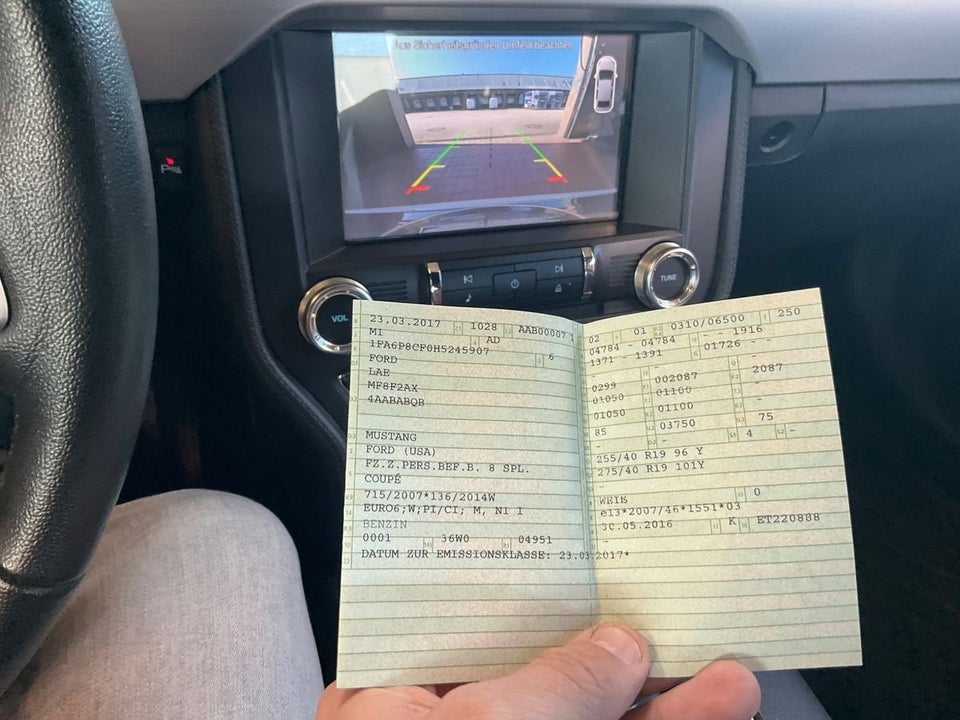 Aus Sicherheitsgründen Umfeld beachten
VOL
TUNE
23.03.2017 1028 AAB00007
M1 AD
1FA6P8CF0H5245907 6
FORD
LAE
MF8F2AX
4AABABQB
MUSTANG
FORD (USA)
FZ.Z.PERS.BEF.B. 8 SPL.
COUPÉ
715/2007*136/2014W
EURO6;W;PI/CI; M, N1 I
BENZIN
0001 36W0 04951
DATUM ZUR EMISSIONSKLASSE: 23.03.2017*
02 01 0310/06500 250
04784 - 04784 - 1916
1371 - 1391 01726 -
0299 002087 2087
01050 01100 -
01050 01100 -
85 03750 75
- - 4 -
255/40 R19 96 Y
275/40 R19 101Y
-
WEIß 0
e13*2007/46*1551*03
30.05.2016 K ET220888
-